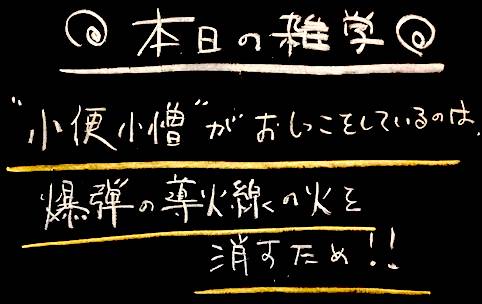 本日の雑学
"小便小僧"がおしっこをしているのは、
爆弾の導火線の火を
消すため!!